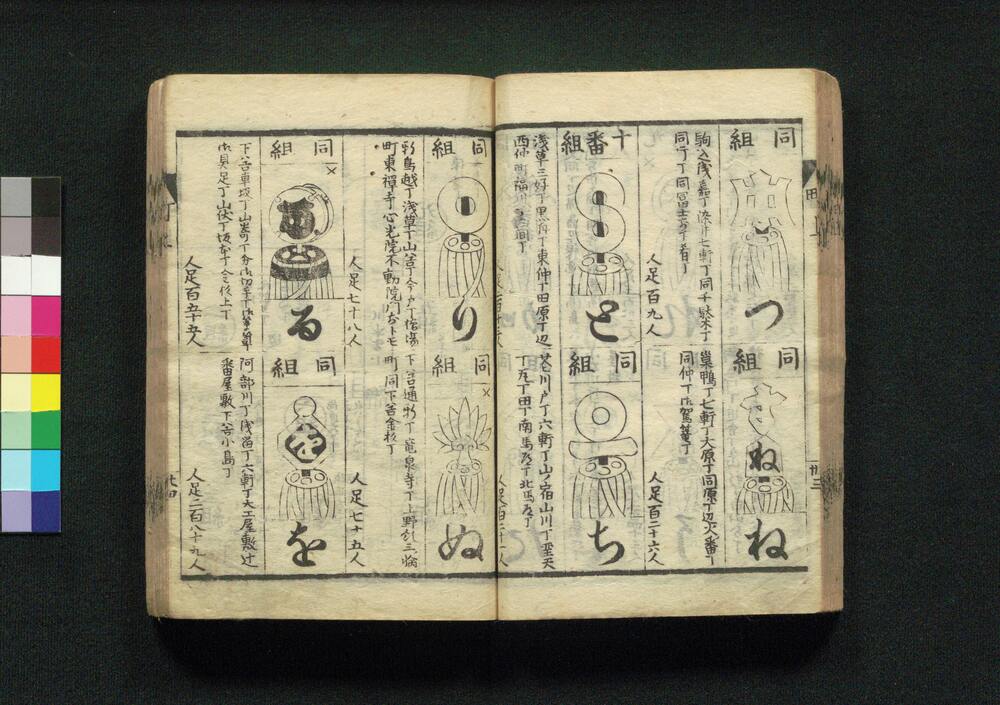 同組
つ
駒込浅嘉丁染井七軒丁同千駄木丁
同丁同冨士前丁
人足百九人
同組
ね
ね
巣鴨丁七軒丁大原丁同原丁辺火番丁
同仲丁御駕篭丁
人足百二十六人
十番組
と
浅草三好丁黒舟丁東仲丁田原丁辺
西仲町福川
同組
ち
花川戸丁六軒丁山ノ宿山川丁聖天
丁瓦丁田丁南馬道丁北馬道丁
同組
り
新鳥越丁浅草丁山谷丁今戸丁橋場
町東禅寺心光院不動院門前トモ
人足七十八人
同組
ぬ
下谷通新丁竜泉寺丁上野於三輪
町同下谷金杉丁
人足七十五人
同組
る
下谷車坂丁山崎丁
御具足丁山伏丁坂本丁
人足百五十五人
同組
を
阿部川丁浅留丁六軒丁大工屋敷辻
番屋敷下谷小島丁
人足二百八十九人
廿三
廿四